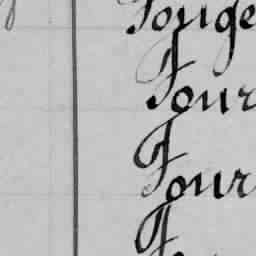 Fouge
Four
Four